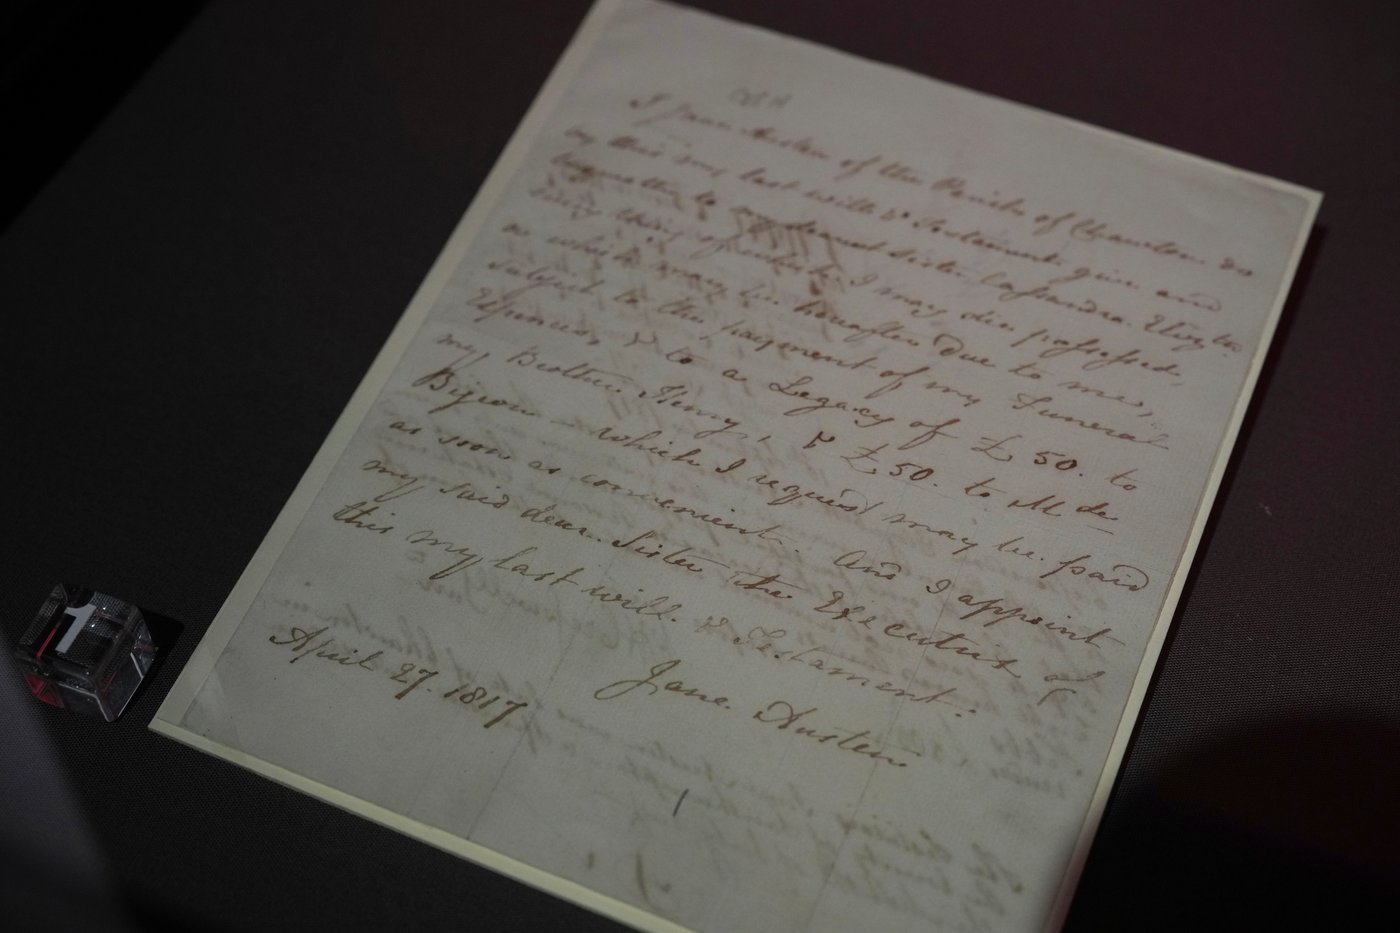 I Jane Austen of the Parish of Chawton do
by this my last will & Testament give and
bequeath to my dearest Sister Cassandra Elizth
every thing of which I may die possessed,
or which may be hereafter due to me,
subject to the payment of my Funeral
Expences, & to a Legacy of £50. to
my Brother Henry, & £50. to M de
Bigeon - which I request may be paid
as soon as convenient. And I appoint
my said dear Sister the Executrix of
this my last will & Testament.
Jane Austen
April 27. 1817
1